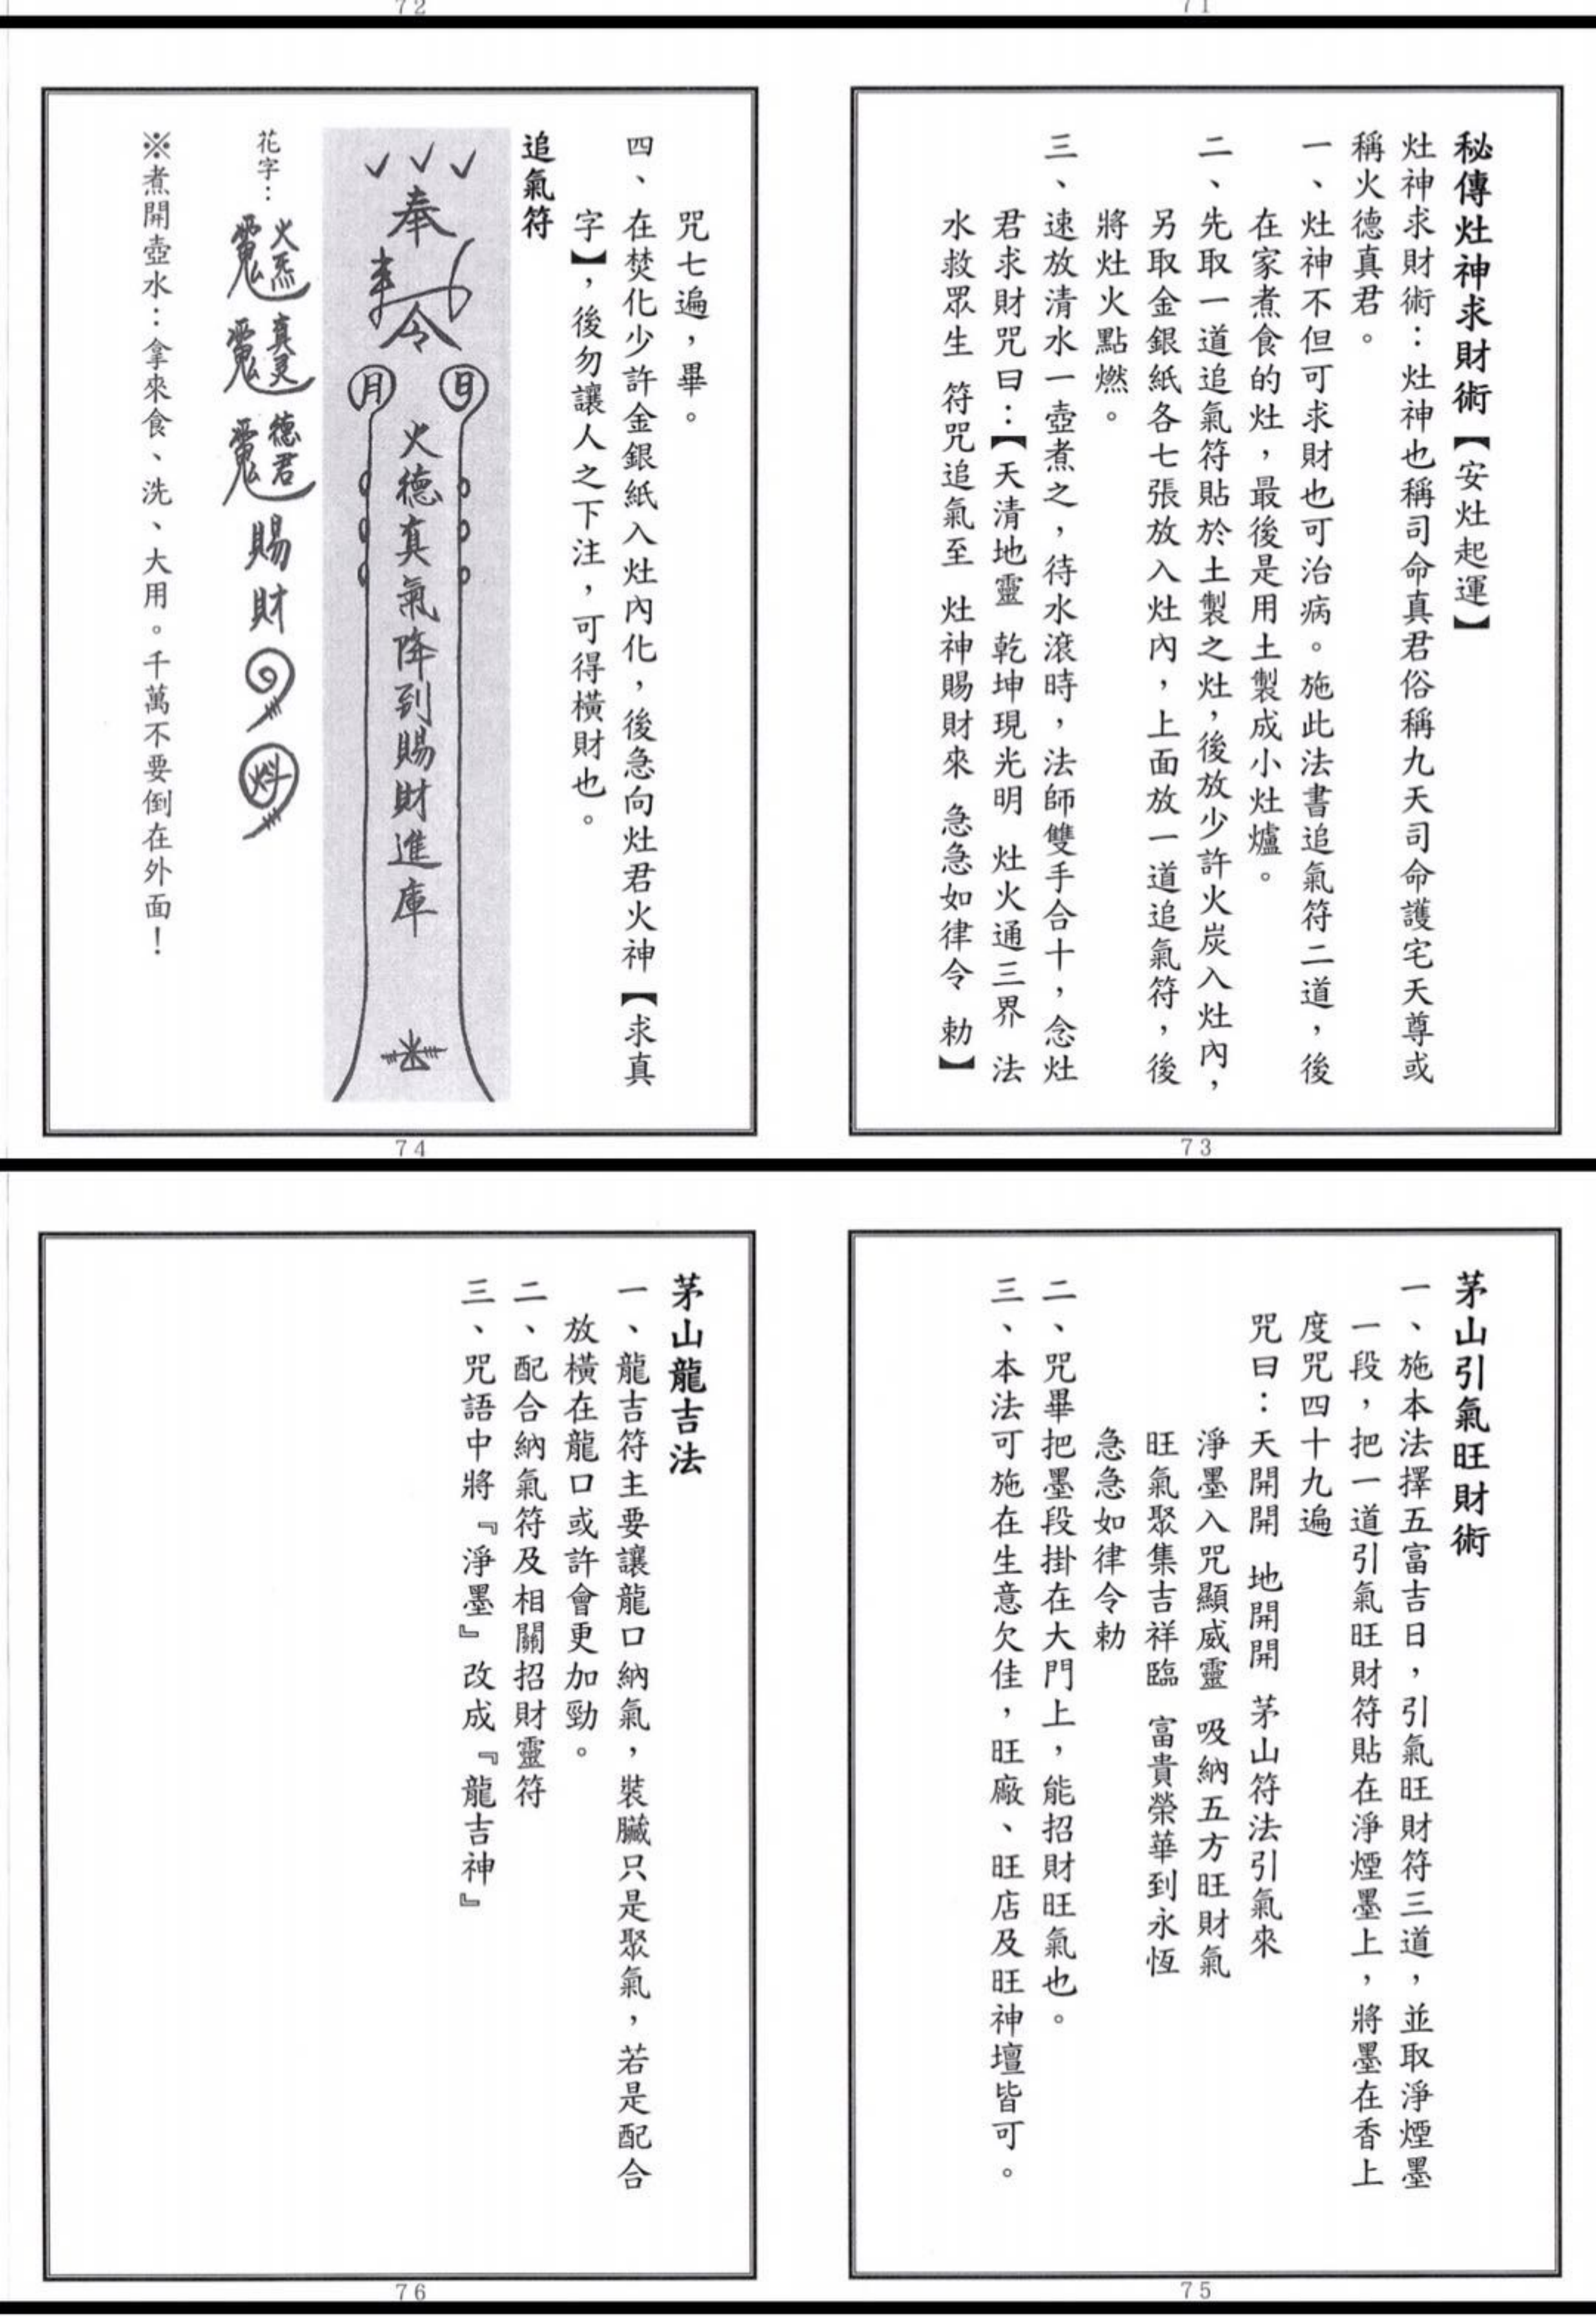 72
71
秘傳灶神求財術【安灶起運】
灶神求財術：灶神也稱司命真君俗稱九天司命護宅天尊或
稱火德真君。
一、灶神不但可求財也可治病。施此法書追氣符二道，後
在家煮食的灶，最後是用土製成小灶爐。
二、先取一道追氣符貼於土製之灶，後放少許火炭入灶內，
另取金銀紙各七張放入灶內，上面放一道追氣符，後
將灶火點燃。
三、速放清水一壺煮之，待水滾時，法師雙手合十，念灶
君求財咒曰：【天清地靈 乾坤現光明 灶火通三界 法
水救眾生 符咒追氣至 灶神賜財來 急急如律令 勅】
73
咒七遍，畢。
四、在焚化少許金銀紙入灶內化，後急向灶君火神【求真
字】，後勿讓人之下注，可得橫財也。
追氣符
奉
令
日
月
火德真氣降到賜財進庫
花字：
火炁
真灵
德君
賜財
※煮開壺水：拿來食、洗、大用。千萬不要倒在外面！
74
茅山引氣旺財術
一、施本法擇五富吉日，引氣旺財符三道，並取淨煙墨
一段，把一道引氣旺財符貼在淨煙墨上，將墨在香上
度咒四十九遍
咒曰：天開開 地開開 茅山符法引氣來
淨墨入咒顯威靈 吸納五方旺財氣
旺氣聚集吉祥臨 富貴榮華到永恆
急急如律令勅
二、咒畢把墨段掛在大門上，能招財旺氣也。
三、本法可施在生意欠佳，旺廠、旺店及旺神壇皆可。
75
茅山龍吉法
一、龍吉符主要讓龍口納氣，裝臟只是聚氣，若是配合
放橫在龍口或許會更加勁。
二、配合納氣符及相關招財靈符
三、咒語中將『淨墨』改成『龍吉神』
76